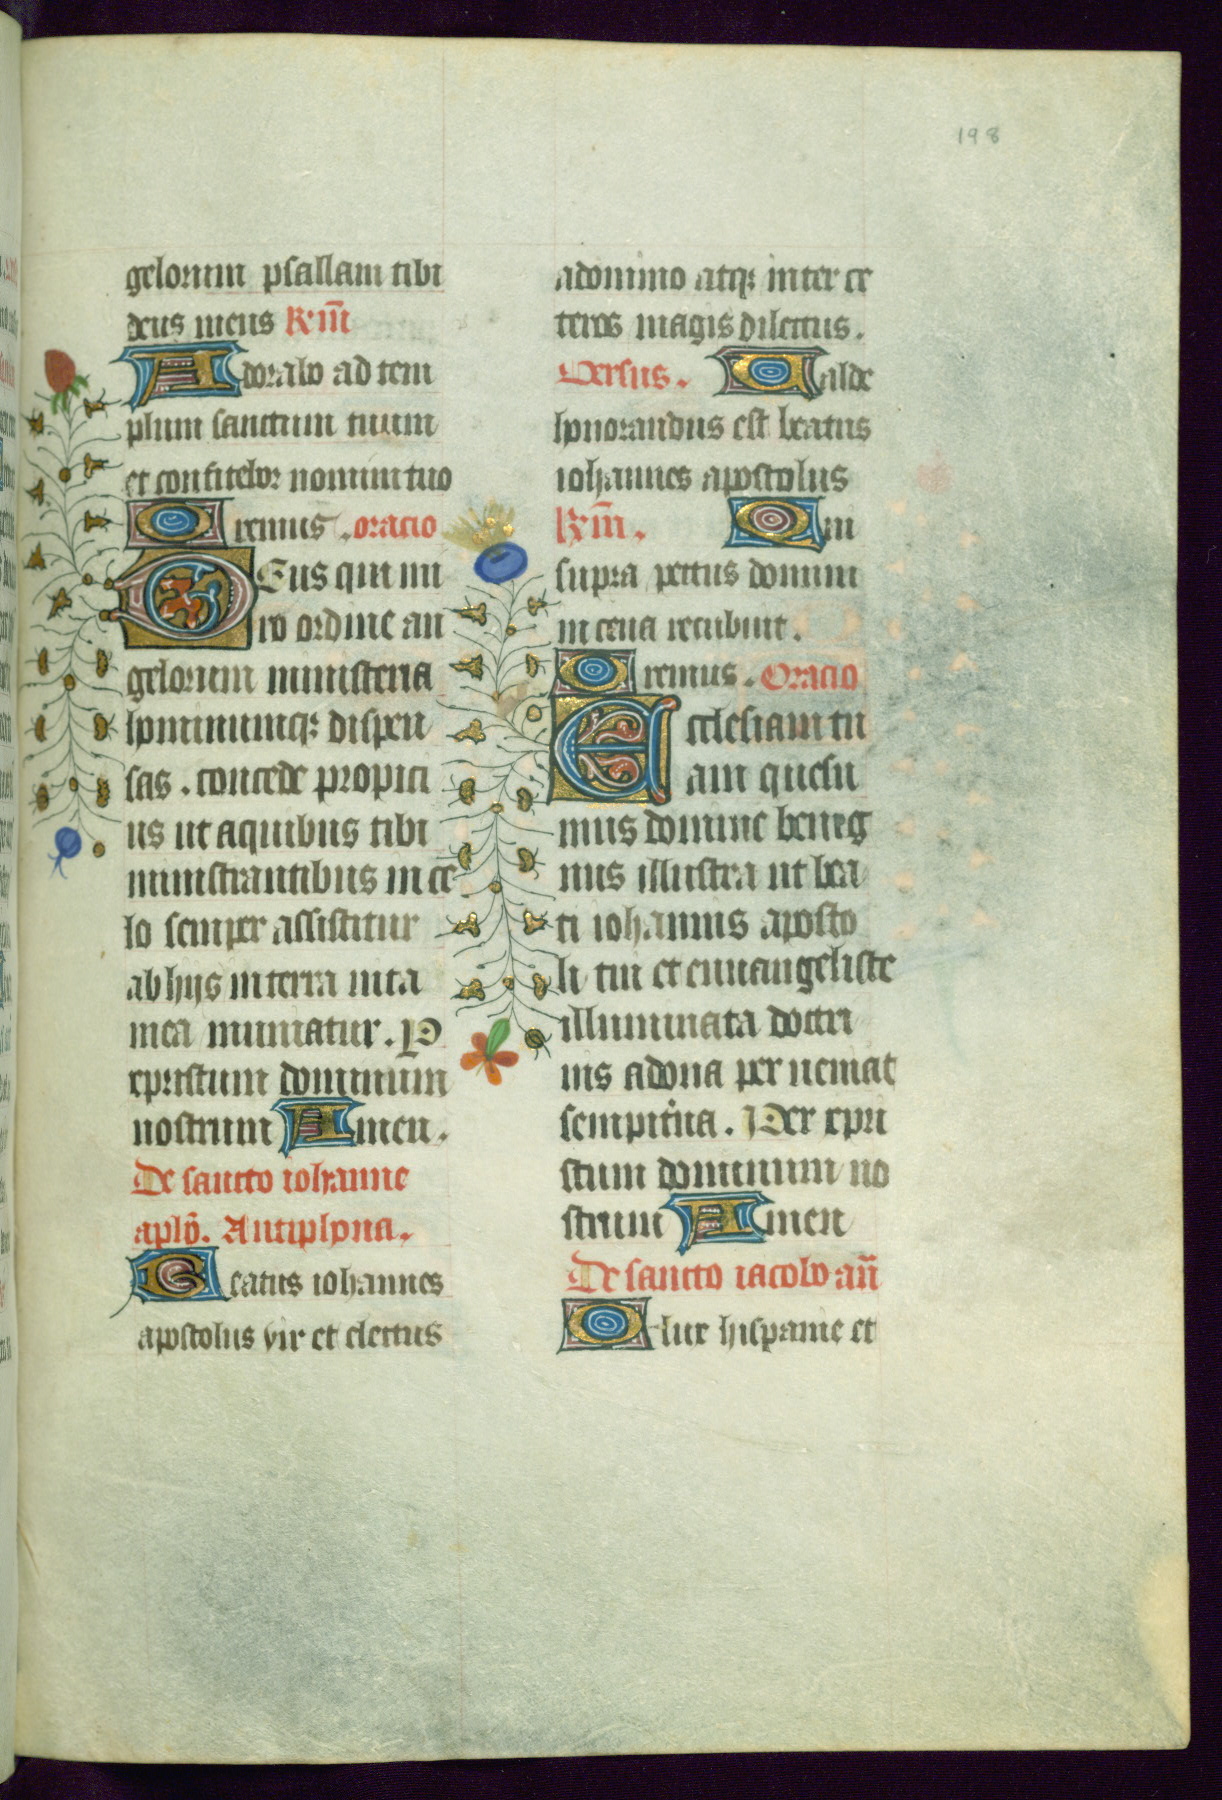 198
gelorum psallam tibi
deus meus R⁊m̄
Adorabo ad tem
plum sanctum tuum
et confitebor nomini tuo
Oremus. oracio
DEus qui mi
ro ordine an
gelorum ministeria
hominumq; dispen
sas. concede propici
us ut aquibus tibi
ministrantibus in ce
lo semper assistitur
ab hijs in terra uita
mea muniatur. P
xpristum dominum
nostrum Amen.
De sancto iohanne
aplō. Antiphona.
Beatus iohannes
apostolus vir et electus
adomino atq; inter ce
teros magis dilectus.
Versus. Valde
honorandus est beatus
iohannes apostolus
R⁊m̄. Qui
supra pectus domini
in cena recubuit.
Oremus. Oracio
Ecclesiam tu
am quesu
mus domine benig
nus illustra ut bea
ti iohannis aposto
li tui et euuangeliste
illuminata doctri
nis adona perueniat
sempit̓na. Per xpri
stum dominum no
strum Amen
De sancto iacobo an̄
O lux hispanie et